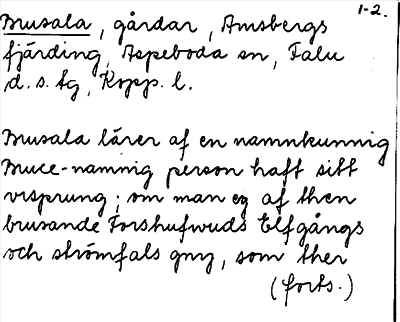 1-2.
Busala, gårdar, Amsbergs
fjärding, Aspeboda sn, Falu
d. s. tg, Kopp. l.
Busala lärer af en namnkunnig
Buce-namnig person haft sitt
vrsprung; om man ej af then
brusande Forshufwuds Elfgångs
och strömfals gny, som ther
(forts.)